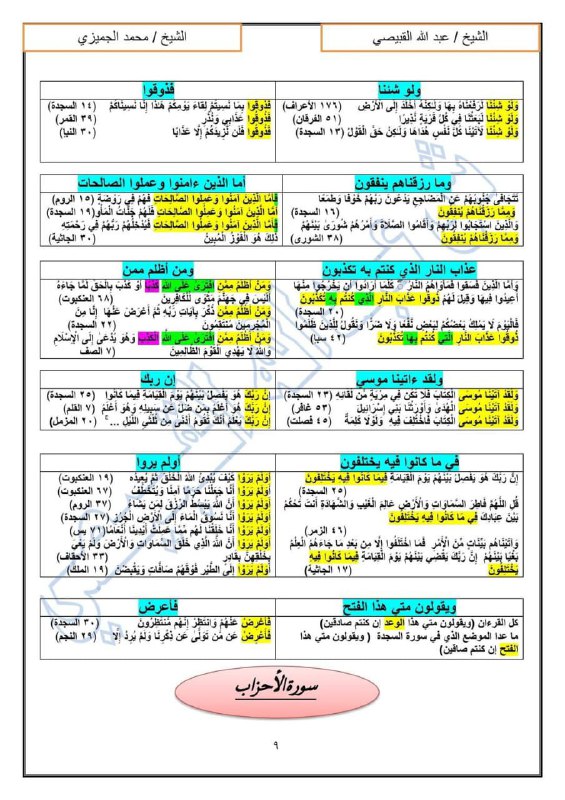 الشيخ / عبد الله القبيصي
الشيخ / محمد الجميزي
ولو شئنا
وَلَوْ شِئْنَا لَرَفَعْنَاهُ بِهَا وَلَكِنَّهُ أَخْلَدَ إِلَى الأَرْضِ (١٧٦ الأعراف)
وَلَوْ شِئْنَا لَبَعَثْنَا فِي كُلِّ قَرْيَةٍ نَّذِيرًا (٥١ الفرقان)
وَلَوْ شِئْنَا لَآتَيْنَا كُلَّ نَفْسٍ هُدَاهَا وَلَكِنْ حَقَّ الْقَوْلُ (١٣ السجدة)
فذوقوا
فَذُوقُوا بِمَا نَسِيتُمْ لِقَاءَ يَوْمِكُمْ هَذَا إِنَّا نَسِينَاكُمْ (١٤ السجدة)
فَذُوقُوا عَذَابِي وَنُذُرِ (٣٩ القمر)
فَذُوقُوا فَلَن نَّزِيدَكُمْ إِلَّا عَذَابًا (٣٠ النبأ)
ومما رزقناهم ينفقون
تَتَجَافَى جُنُوبُهُمْ عَنِ الْمَضَاجِعِ يَدْعُونَ رَبَّهُمْ خَوْفًا وَطَمَعًا
وَمِمَّا رَزَقْنَاهُمْ يُنفِقُونَ (١٦ السجدة)
وَالَّذِينَ اسْتَجَابُوا لِرَبِّهِمْ وَأَقَامُوا الصَّلَاةَ وَأَمْرُهُمْ شُورَى بَيْنَهُمْ
وَمِمَّا رَزَقْنَاهُمْ يُنفِقُونَ (٣٨ الشورى)
أما الذين ءامنوا وعملوا الصالحات
فَأَمَّا الَّذِينَ آمَنُوا وَعَمِلُوا الصَّالِحَاتِ فَهُمْ فِي رَوْضَةٍ (١٥ الروم)
أَمَّا الَّذِينَ آمَنُوا وَعَمِلُوا الصَّالِحَاتِ فَلَهُمْ جَنَّاتُ الْمَأْوَ(١٩ السجدة)
فَأَمَّا الَّذِينَ آمَنُوا وَعَمِلُوا الصَّالِحَاتِ فَيُدْخِلُهُمْ رَبُّهُمْ فِي رَحْمَتِهِ
ذَلِكَ هُوَ الْفَوْزُ الْمُبِينُ (٣٠ الجاثية)
عذاب النار الذي كنتم به تكذبون
وَأَمَّا الَّذِينَ فَسَقُوا فَمَأْوَاهُمُ النَّارُ كُلَّمَا أَرَادُوا أَن يَخْرُجُوا مِنْهَا
أُعِيدُوا فِيهَا وَقِيلَ لَهُمْ ذُوقُوا عَذَابَ النَّارِ الَّذِي كُنتُم بِهِ تُكَذِّبُونَ
(٢٠ السجدة)
فَالْيَوْمَ لَا يَمْلِكُ بَعْضُكُمْ لِبَعْضٍ نَّفْعًا وَلَا ضَرًّا وَنَقُولُ لِلَّذِينَ ظَلَمُوا
ذُوقُوا عَذَابَ النَّارِ الَّتِي كُنتُم بِهَا تُكَذِّبُونَ (٤٢ سبأ)
ومن أظلم ممن
وَمَنْ أَظْلَمُ مِمَّنِ افْتَرَى عَلَى اللَّهِ كَذِبًا أَوْ كَذَّبَ بِالْحَقِّ لَمَّا جَاءَهُ
أَلَيْسَ فِي جَهَنَّمَ مَثْوًى لِّلْكَافِرِينَ (٦٨ العنكبوت)
وَمَنْ أَظْلَمُ مِمَّن ذُكِّرَ بِآيَاتِ رَبِّهِ ثُمَّ أَعْرَضَ عَنْهَا إِنَّا مِنَ
الْمُجْرِمِينَ مُنتَقِمُونَ (٢٢ السجدة)
وَمَنْ أَظْلَمُ مِمَّنِ افْتَرَى عَلَى اللَّهِ الْكَذِبَ وَهُوَ يُدْعَى إِلَى الْإِسْلَامِ
وَاللَّهُ لَا يَهْدِي الْقَوْمَ الظَّالِمِينَ (٧ الصف
ولقد ءاتينا موسي
وَلَقَدْ آتَيْنَا مُوسَى الْكِتَابَ فَلَا تَكُن فِي مِرْيَةٍ مِّن لِّقَائِهِ (٢٣ السجدة)
وَلَقَدْ آتَيْنَا مُوسَى الْهُدَى وَأَوْرَثْنَا بَنِي إِسْرَائِيلَ (٥٣ غافر)
وَلَقَدْ آتَيْنَا مُوسَى الْكِتَابَ فَاخْتُلِفَ فِيهِ وَلَوْلَا كَلِمَةٌ (٤٥ فصلت)
إن ربك
إِنَّ رَبَّكَ هُوَ يَفْصِلُ بَيْنَهُمْ يَوْمَ الْقِيَامَةِ فِيمَا كَانُوا (٢٥ السجدة)
إِنَّ رَبَّكَ هُوَ أَعْلَمُ بِمَن ضَلَّ عَن سَبِيلِهِ وَهُوَ أَعْلَمُ (٧ القلم)
إِنَّ رَبَّكَ يَعْلَمُ أَنَّكَ تَقُومُ أَدْنَى مِن ثُلُثَيِ اللَّيْلِ ..." (٢٠ المزمل)
في ما كانوا فيه يختلفون
إِنَّ رَبَّكَ هُوَ يَفْصِلُ بَيْنَهُمْ يَوْمَ الْقِيَامَةِ فِيمَا كَانُوا فِيهِ يَخْتَلِفُونَ
(٢٥ السجدة)
قُلِ اللَّهُمَّ فَاطِرَ السَّمَاوَاتِ وَالْأَرْضِ عَالِمَ الْغَيْبِ وَالشَّهَادَةِ أَنتَ تَحْكُمُ
بَيْنَ عِبَادِكَ فِي مَا كَانُوا فِيهِ يَخْتَلِفُونَ
(٤٦ الزمر)
وَآتَيْنَاهُم بَيِّنَاتٍ مِّنَ الْأَمْرِ فَمَا اخْتَلَفُوا إِلَّا مِن بَعْدِ مَا جَاءَهُمُ الْعِلْمُ
بَغْيًا بَيْنَهُمْ إِنَّ رَبَّكَ يَقْضِي بَيْنَهُمْ يَوْمَ الْقِيَامَةِ فِيمَا كَانُوا فِيهِ
يَخْتَلِفُونَ (١٧ الجاثية)
أولم يروا
أَوَلَمْ يَرَوْا كَيْفَ يُبْدِئُ اللَّهُ الْخَلْقَ ثُمَّ يُعِيدُهُ (١٩ العنكبوت)
أَوَلَمْ يَرَوْا أَنَّا جَعَلْنَا حَرَمًا آمِنًا وَيُتَخَطَّفُ (٦٧ العنكبوت)
أَوَلَمْ يَرَوْا أَنَّ اللَّهَ يَبْسُطُ الرِّزْقَ لِمَن يَشَاءُ (٣٧ الروم)
أَوَلَمْ يَرَوْا أَنَّا نَسُوقُ الْمَاءَ إِلَى الْأَرْضِ الْجُرُزِ (٢٧ السجدة)
أَوَلَمْ يَرَوْا أَنَّا خَلَقْنَا لَهُم مِّمَّا عَمِلَتْ أَيْدِينَا أَنْعَامًا (٧١ يس)
أَوَلَمْ يَرَوْا أَنَّ اللَّهَ الَّذِي خَلَقَ السَّمَاوَاتِ وَالْأَرْضَ وَلَمْ يَعْيَ
بِخَلْقِهِنَّ بِقَادِرٍ (٣٣ الأحقاف)
أَوَلَمْ يَرَوْا إِلَى الطَّيْرِ فَوْقَهُمْ صَافَّاتٍ وَيَقْبِضْنَ (١٩ الملك)
ويقولون متي هذا الفتح
كل القرءان (ويقولون متي هذا الوعد إن كنتم صادقين)
ما عدا الموضع الذي في سورة السجدة ( ويقولون متي هذا
الفتح إن كنتم صافين)
فأعرض
فَأَعْرِضْ عَنْهُمْ وَانتَظِرْ إِنَّهُم مُّنتَظِرُونَ (٣٠ السجدة)
فَأَعْرِضْ عَن مَّن تَوَلَّى عَن ذِكْرِنَا وَلَمْ يُرِدْ إِلَّا (٢٩ النجم)
سورة الأحزاب
٩